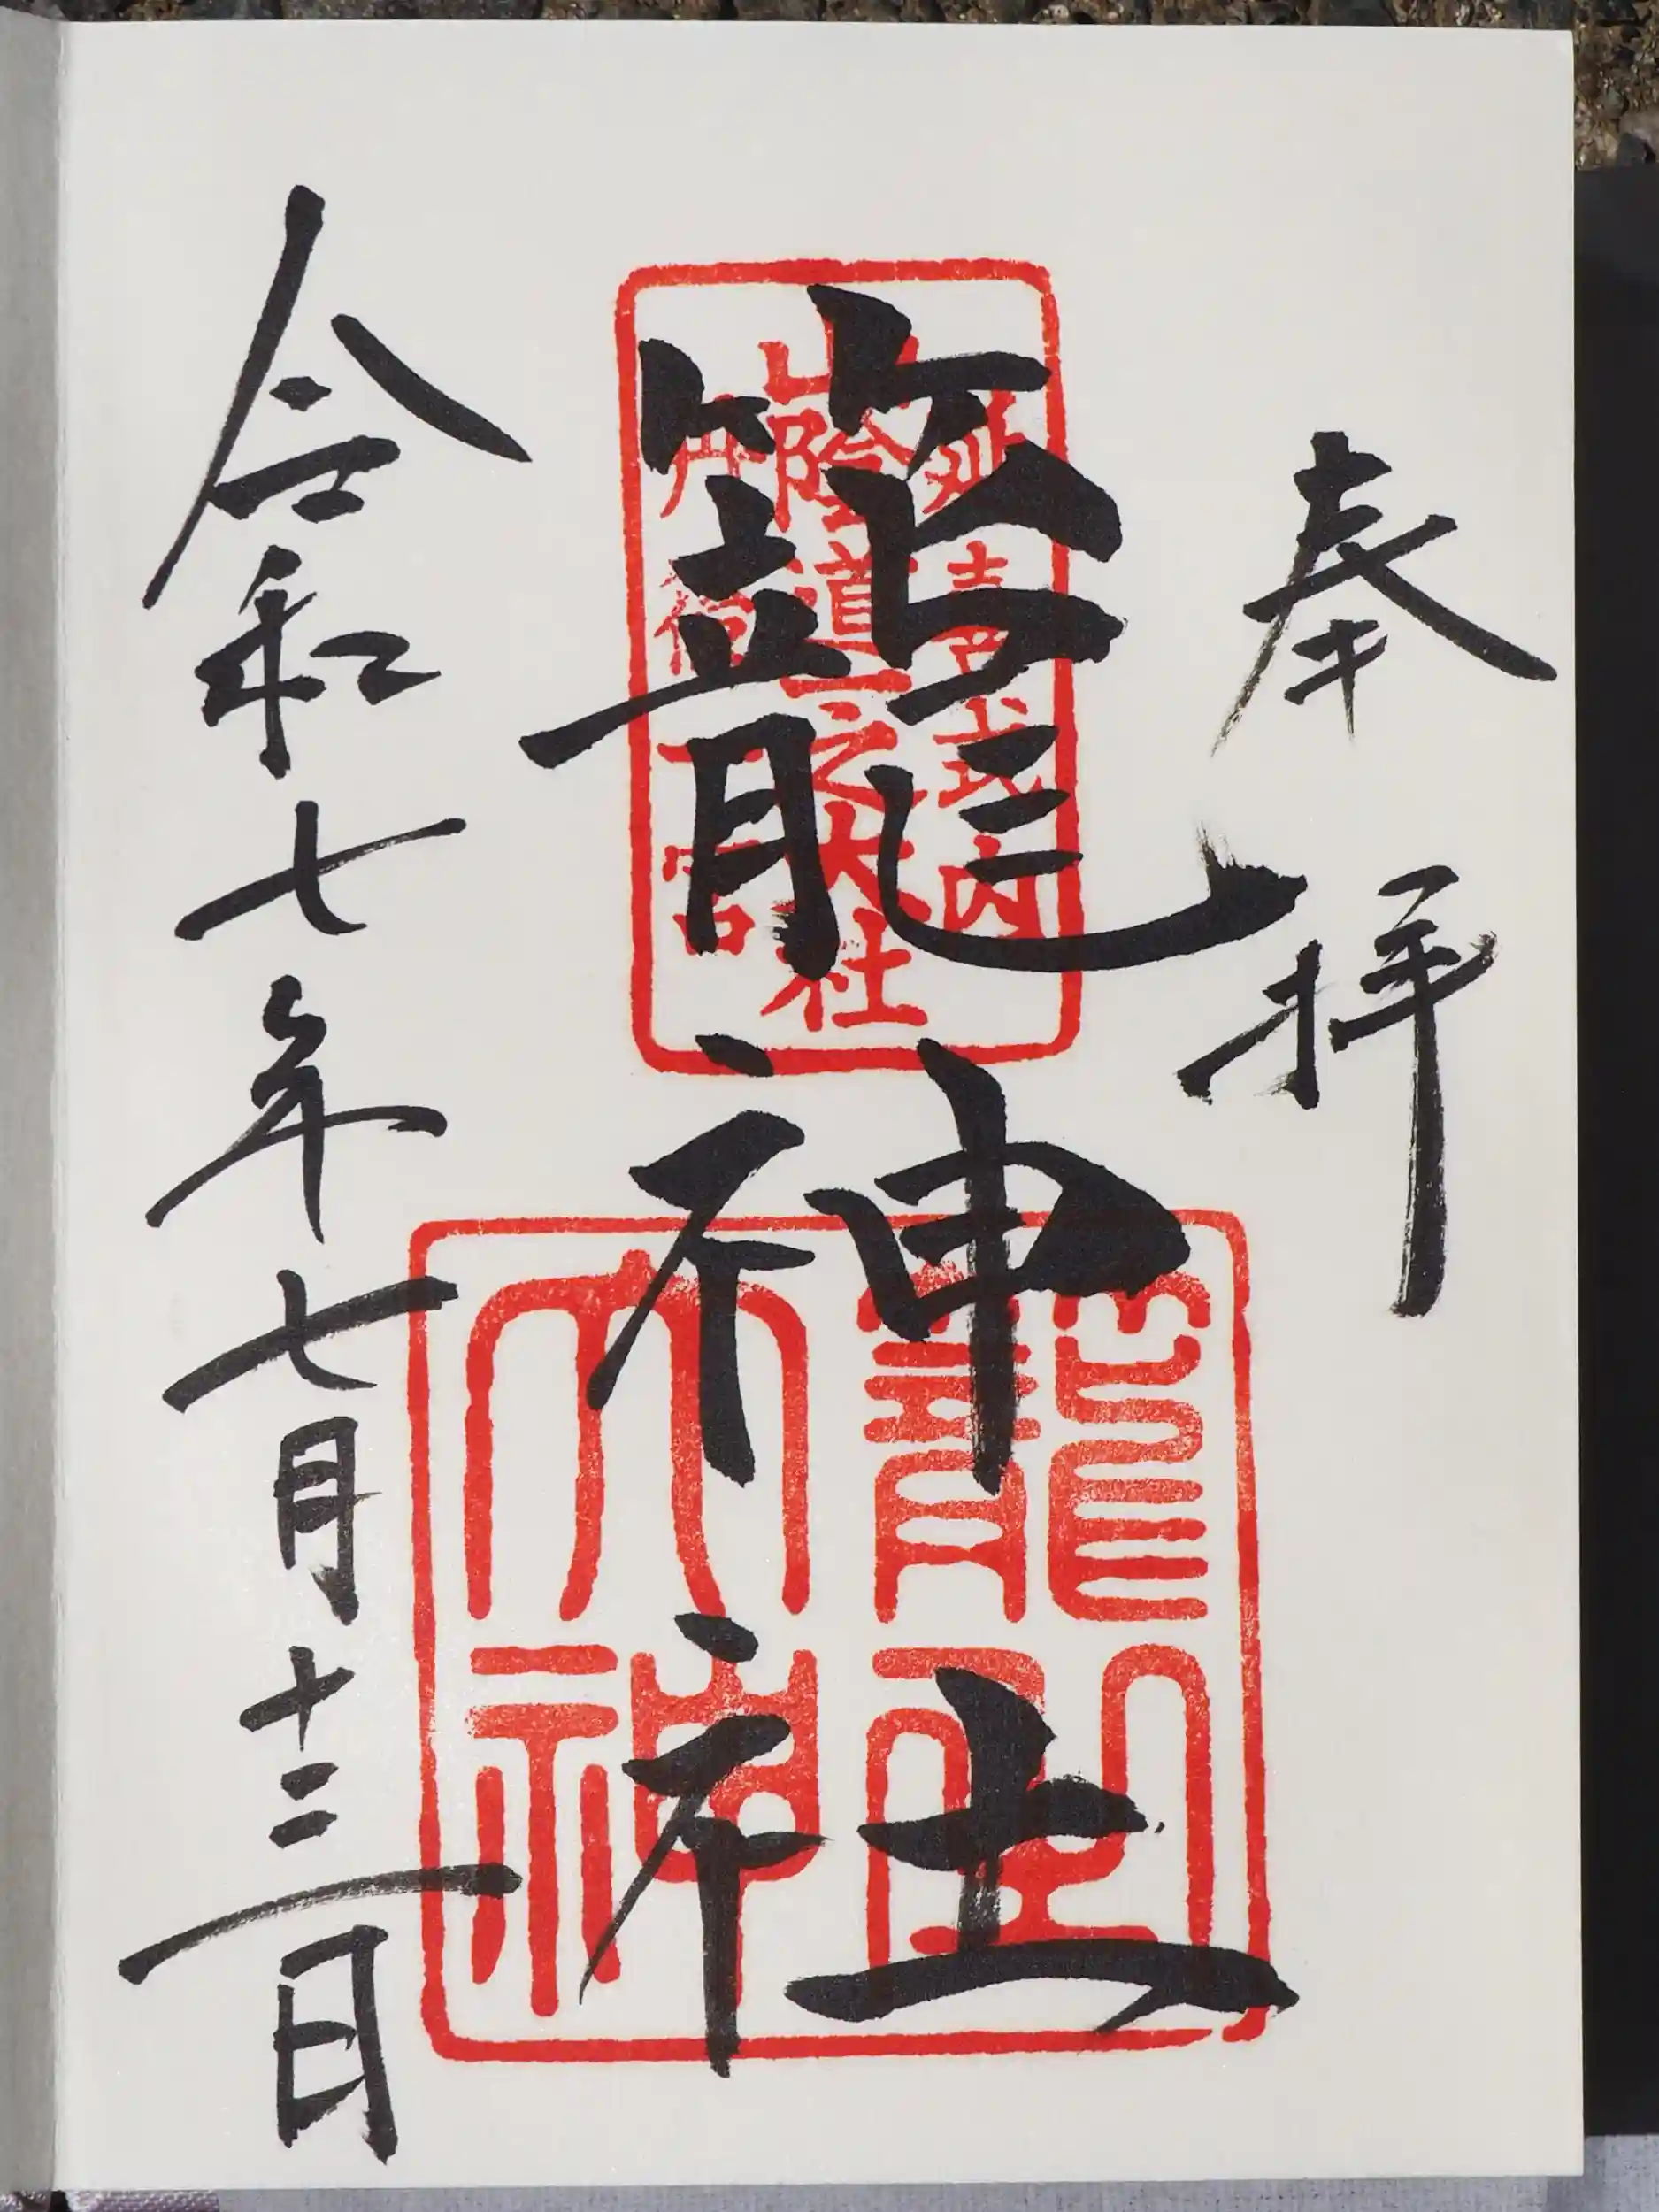 奉拝
延喜式内
山陰道一之大社
丹後一宮
籠神社
籠宮
大神
令和七年七月十三日